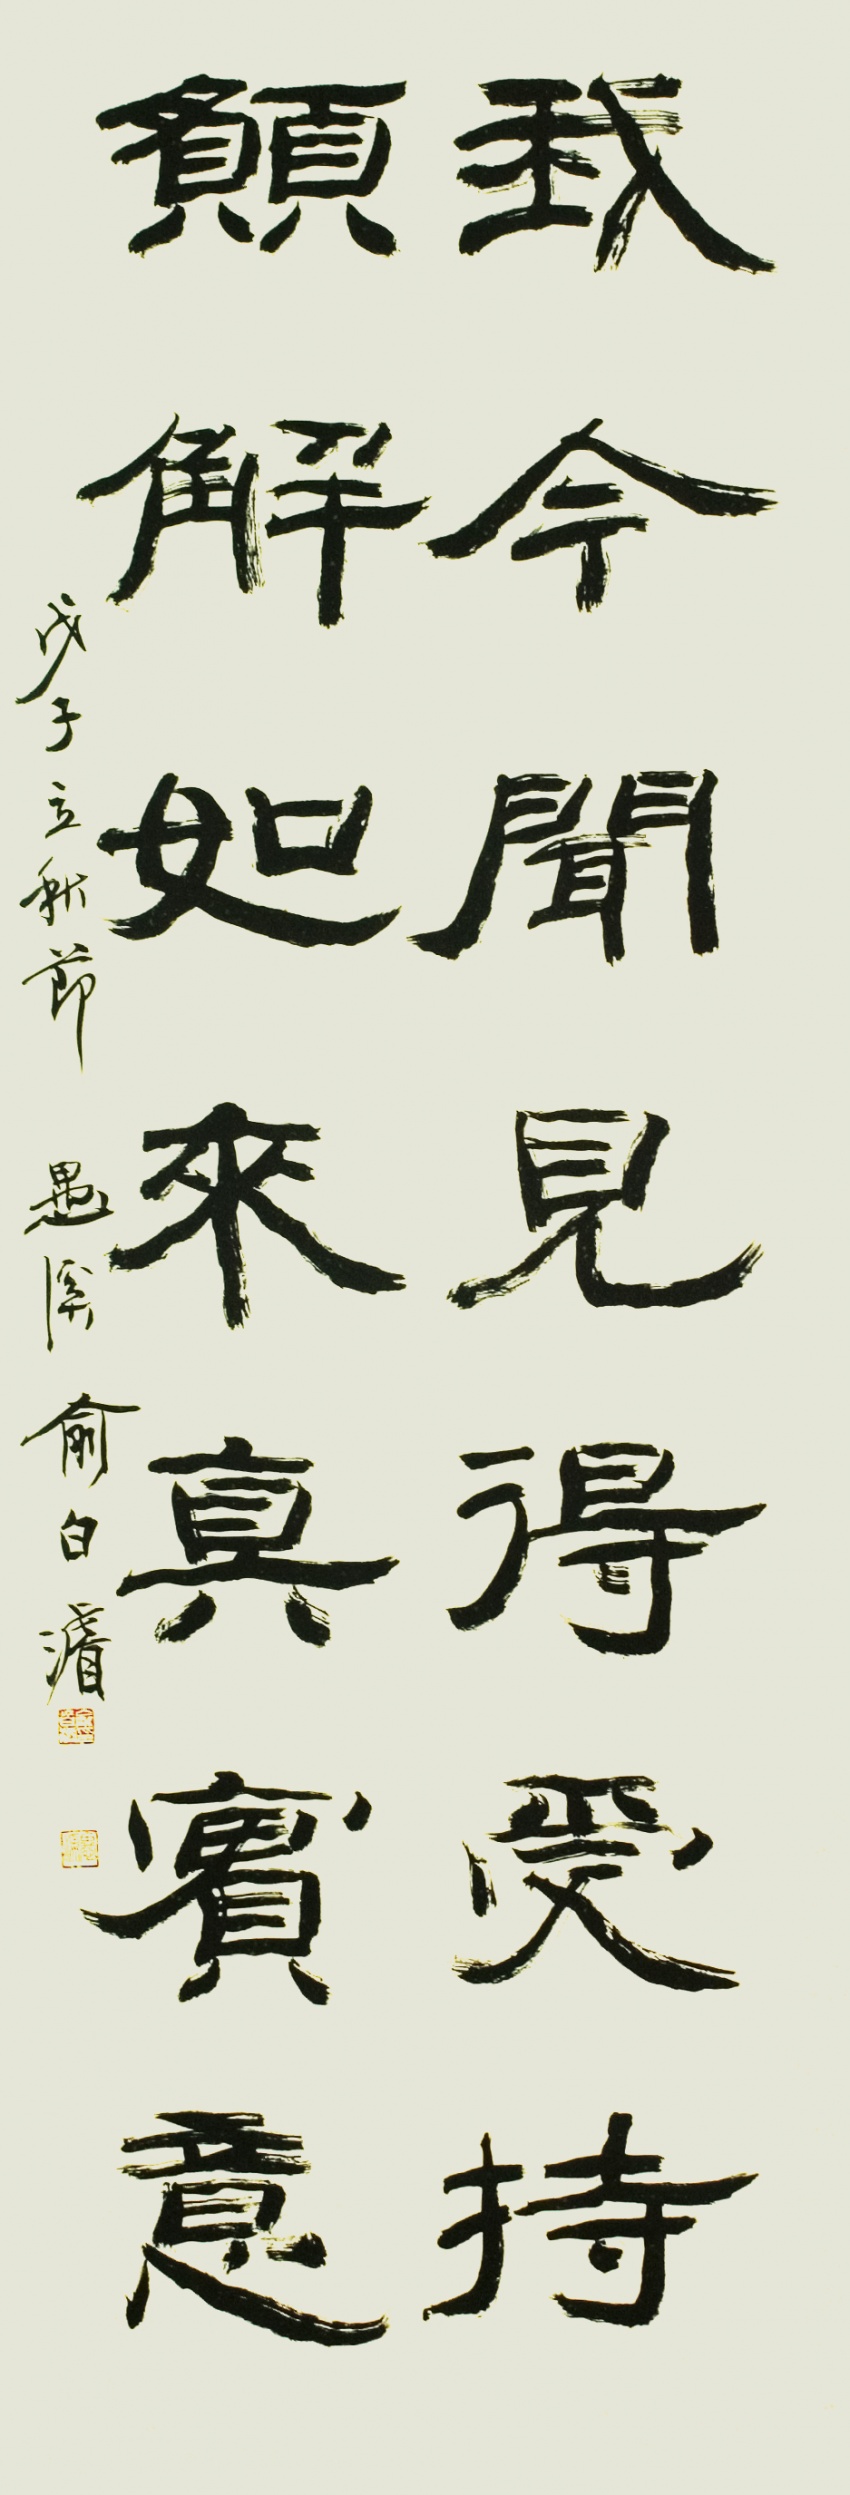 我今聞見得受持
願解如來真實意
戊子立秋節 愚溪 俞白